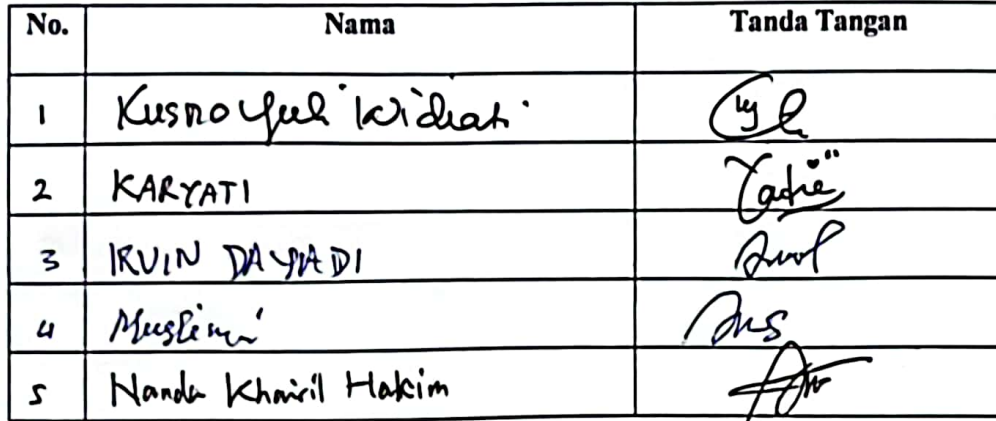 No. Nama Tanda Tangan
1 Kusno Yuli Widiati
2 KARYATI
3 IRVIN DAYADI
4 Muslimin
5 Nanda Khairil Hakim